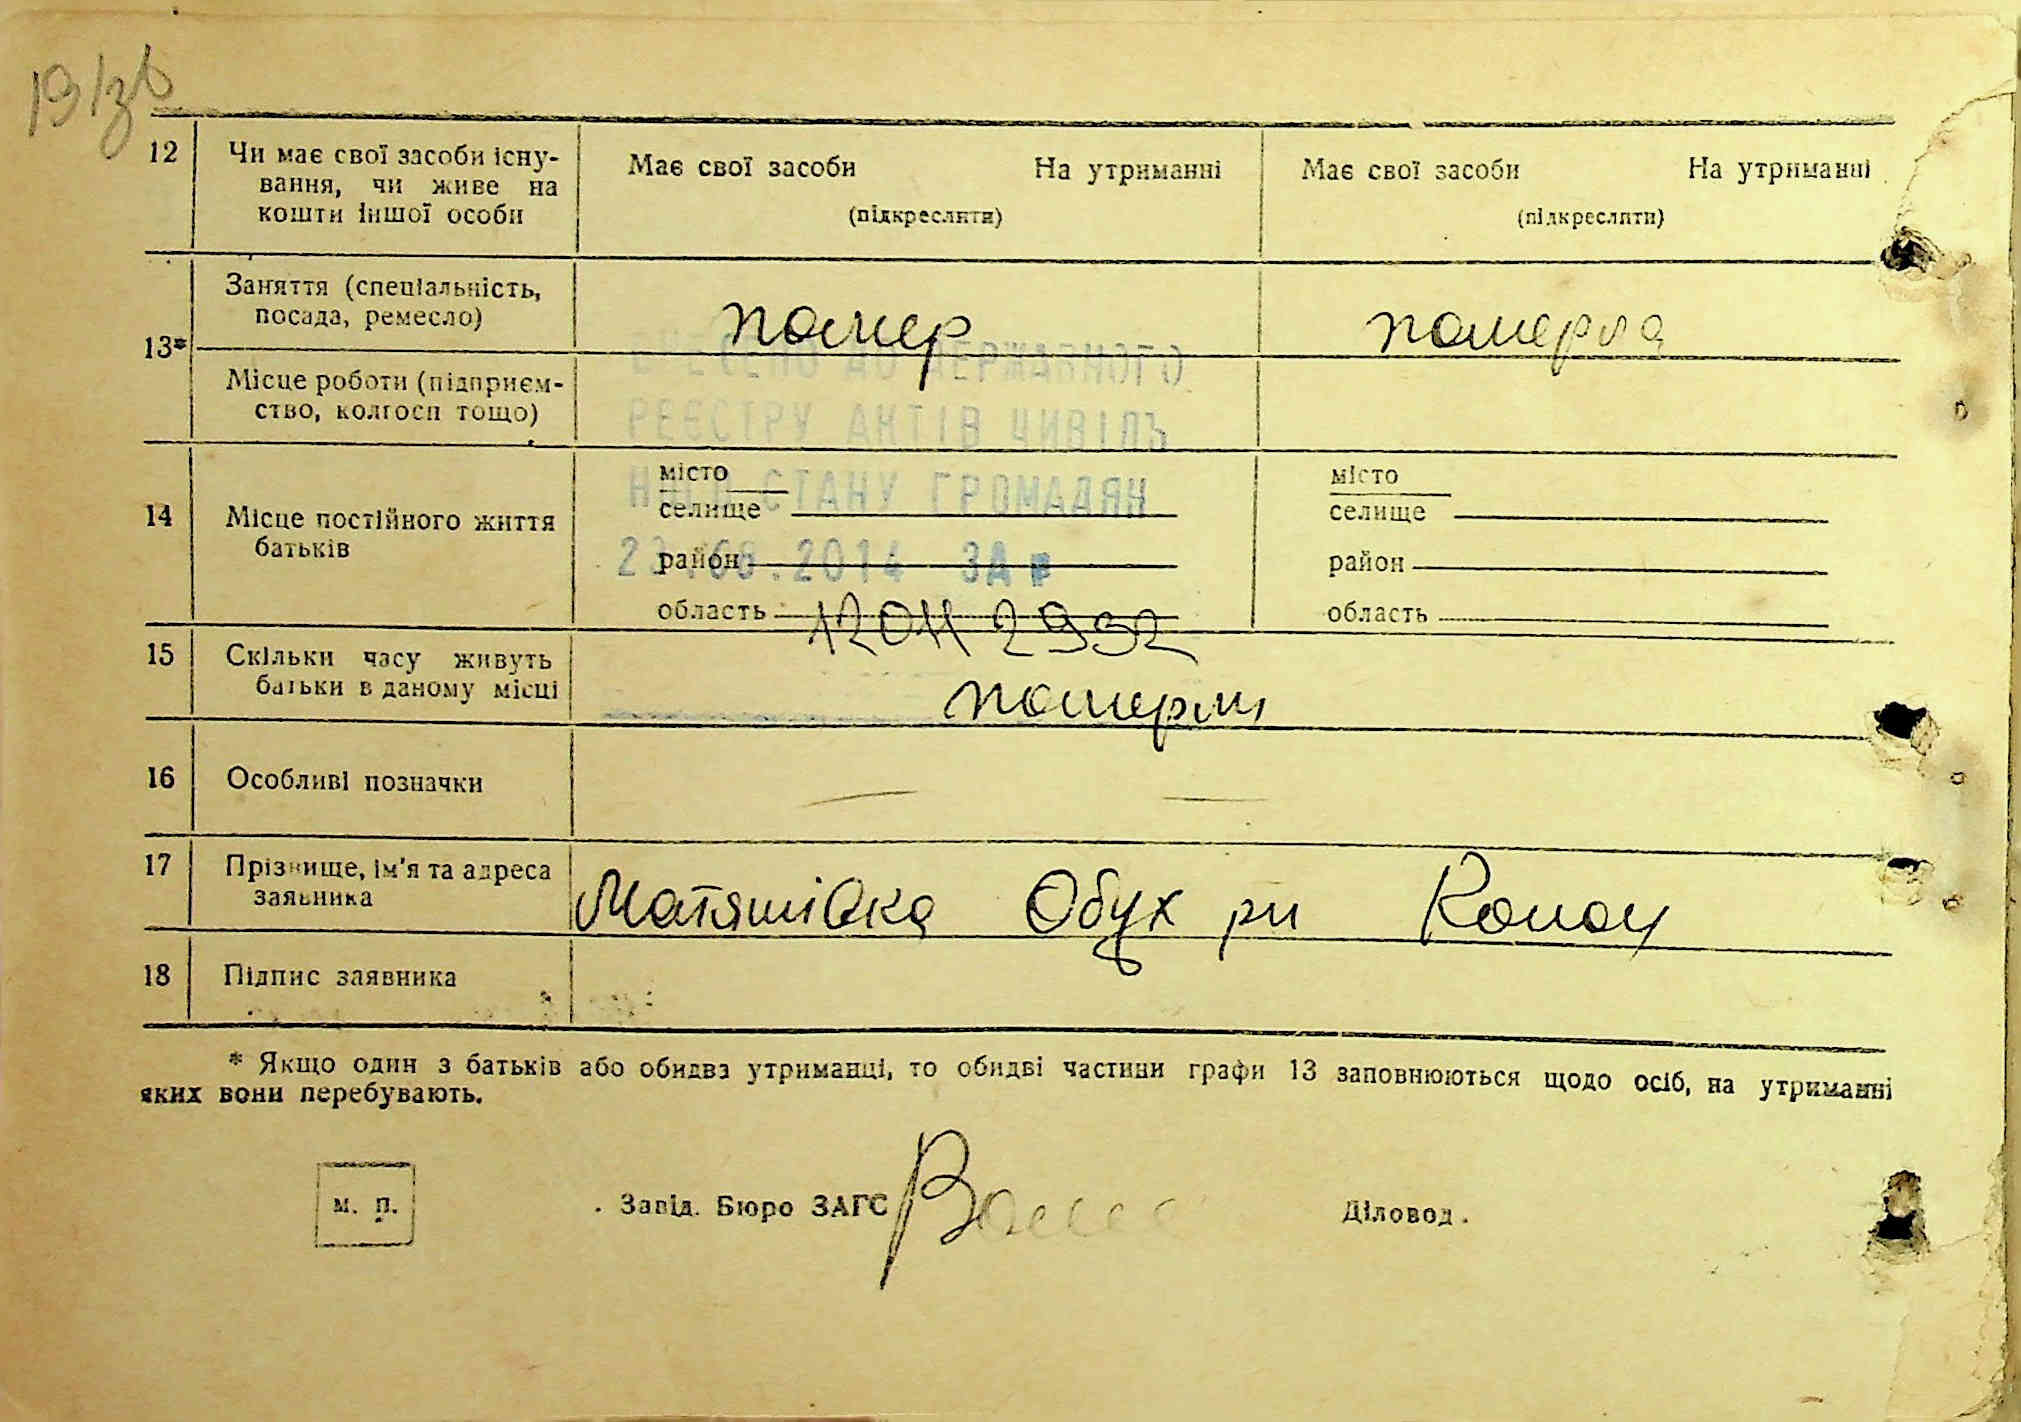 12
Чи має свої засоби існу-
вання, чи живе на
кошти іншої особи
Має свої засоби На утриманні
(підкреслити)
Має свої засоби На утриманні
(підкреслити)
13*
Заняття (спеціальність,
посада, ремесло)
помер
померла
Місце роботи (підприєм-
ство, колгосп тощо)
ВНЕСЕНО ДО ДЕРЖАВНОГО
РЕЄСТРУ АКТІВ ЦИВІЛЬ
НОГО СТАНУ ГРОМАДЯН
14
Місце постійного життя
батьків
місто
селище
район
область
12011 2992
місто
селище
район
область
15
Скільки часу живуть
батьки в даному місці
померли
16
Особливі позначки
17
Прізвище, ім'я та адреса
заявника
Матяшівка Обух рн
18
Підпис заявника
* Якщо один з батьків або обидва утриманці, то обидві частини графи 13 заповнюються щодо осіб, на утриманні
яких вони перебувають.
м. п.
Завід. Бюро ЗАГС
Діловод.